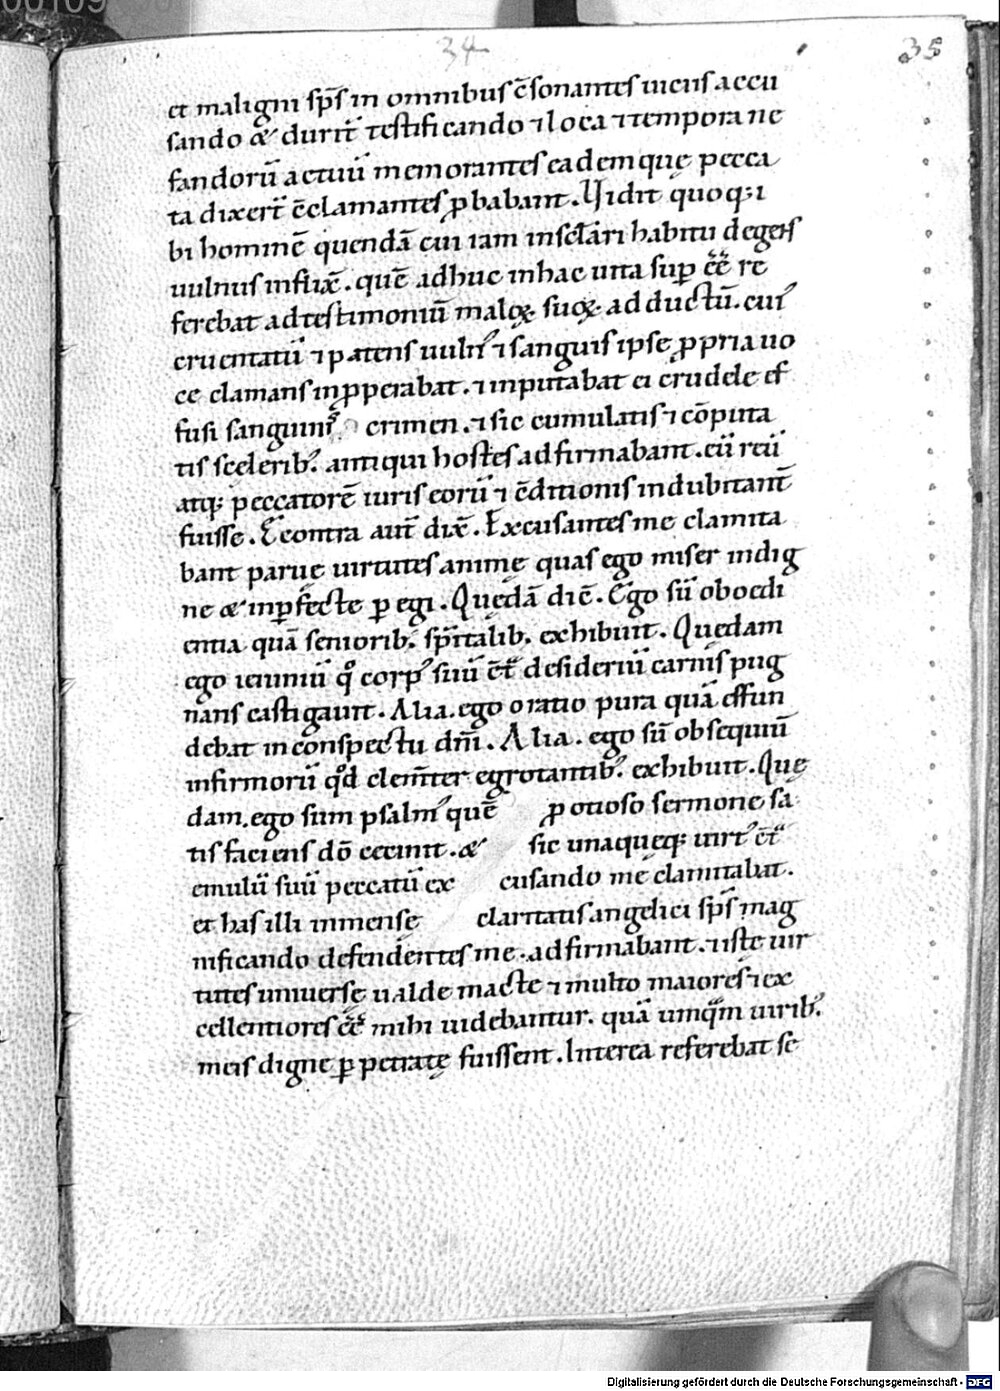 34
35
et maligni sp̄s in omnibus c̄sonantes uiciis accu
sando & durit̄ testificando ⁊ loca ⁊ tempora ne
fandorū actuū memorantes eademque pecca
ta dixer̄t c̄clamantes ꝓbabant. Vidit quoq; i
bi hominē quendā cui iam in sc̄lari habitu degens
uulnus inflix̄. quē adhuc in hac uita sup̄ ēē re
ferebat ad testimoniū maloꝝ suoꝝ adductū. cui᾿
cruentatū ⁊ patens uuln᾿ ⁊ sanguis ipse ꝓpria uo
ce clamans inꝓperabat. ⁊ inputabat ei crudele ef
fusi sanguinis crimen. ⁊ sic cumulatis ⁊ cōputa
tis scelerib᾿. antiqui hostes adfirmabant. eū reū
atq; peccatorē iuris eorū ⁊ c̄ditionis indubitant̄
fuisse. Econtra aut̄ dix̄. Excusantes me clamita
bant paruę uirtutes animę quas ego miser indig
ne & inꝑfecte ꝑegi. Quędā dic̄. Ego sū oboedi
entia quā seniorib; sp̄italib; exhibuit. Quędam
ego ieiuniū qͦ corp᾿ suū c̄t̄ desideriū carnis pug
nans castigauit. Alia. ego oratio pura quā effun
debat in conspectu dn̄i. Alia. ego sū obsequiū
infirmorū qͦd clem̄ter egrotantib᾿ exhibuit. Quę
dam. ego sum psalm᾿ quē ꝓ otioso sermone sa
tis faciens dō cecinit. & sic unaquęq; uirt᾿ c̄t̄
emulū suū peccatū excusando me clamitabat.
et has illi inmensę claritatis angelici sp̄s mag
nificando defendentes me. adfirmabant. ⁊ istę uir
tutes uniuersę ualde mactę ⁊ multo maiores ⁊ ex
cellentiores ēē mihi uidebantur. quā umqͣm uirib᾿
meis digne ꝑpetratę fuissent. Interea referebat se
Digitalisierung gefördert durch die Deutsche Forschungsgemeinschaft - DFG